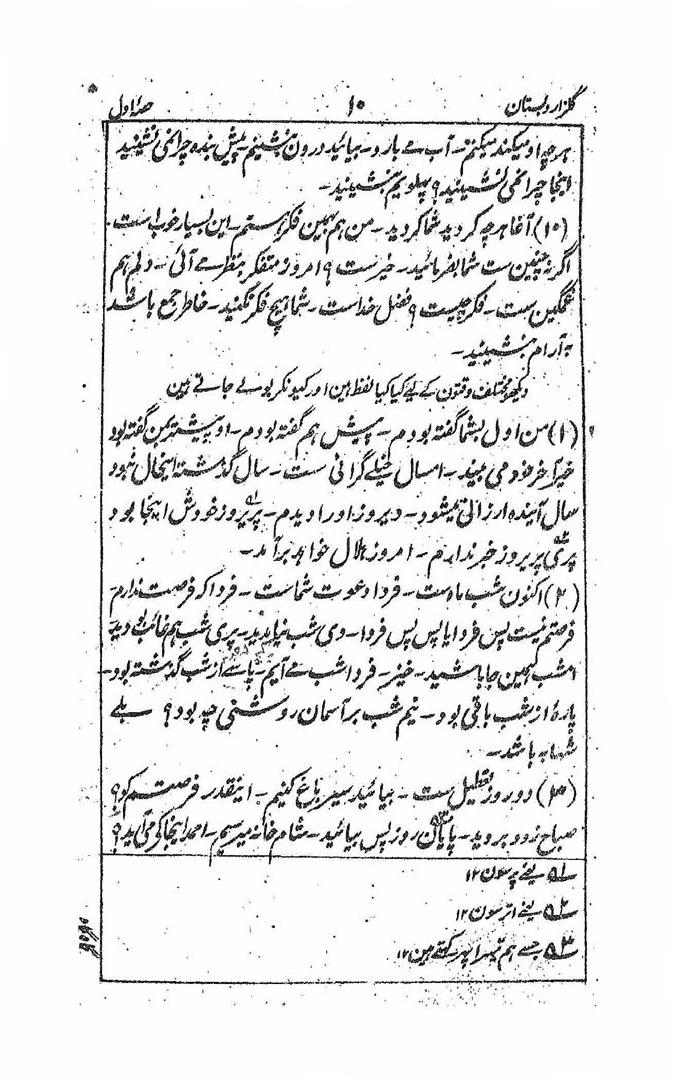 گلزار دبستان ۱۰ حصۂ اول
ہرچہ او میکند میکنم ۔ آب مے بارد ۔ بیائید درون بنشینیم ۔ پیش بندہ چرا نمی نشینید
اینجا چرا نمی نشینید ؟ پہلویم بنشینید ۔
(۱۰) آغا ہرچہ کردید شما کردید ۔ من ہم بہمین فکر ہستم ۔ این بسیار خوب است
اگر چنین ست شما بفرمائید ۔ خیر ست ؟ امروز متفکر بنظر مے آئی ۔ دلم ہم
غمگین ست ۔ فکر چیست ؟ فضل خداست ۔ شما ہیچ فکر نکنید ۔ خاطر جمع باشد
بہ آرام بنشینید ۔
دیکھو مختلف وقتون کے لیے کیا کیا لفظ ہین اور کیونکر بولے جاتے ہین
(۱) من اول بشما گفتہ بودم ۔ پیش ہم گفتہ بودم ۔ او پیشتر بمن گفتہ بود
خیر آخر خود می بیند ۔ امسال خیلے گرانی ست ۔ سال گذشتہ اینحال نبود
سال آیندہ ارزانی میشود ۔ دیروز اورا دیدم ۔ پریروز خودش اینجا بود
پری پریروز خبر ندارم ۔ امروز ہلال خواہد برآمد ۔
(۲) اکنون شب ماہ ست ۔ فردا دعوت شماست ۔ فردا کہ فرصت ندارم
فرصتم نیست پس فردا یا پس پس فردا ۔ دی شب نیامدید ۔ پری شب ہم غائب بودید
امشب ہمین جا باشید ۔ خیر ۔ فردا شب مے آیم ۔ پاسے از شب گذشتہ بود ۔
پارۂ از شب باقی بود ۔ نیم شب بر آسمان روشنی چہ بود ؟ بلے
شہاب باشد ۔
(۳) دو روز تعطیل ست ۔ بیائید سیر باغ کنیم ۔ اینقدر فرصتم کو ؟
صباح زود بروید ۔ پایان روز پس بیائید ۔ شام خانہ میرسیم ۔ احمد اینجا کی می آید ؟
۱ یعنے پرسون ۱۲
۲ یعنے اترسون ۱۲
۳ جسے ہم تیسرا پہر کہتے ہین ۱۲